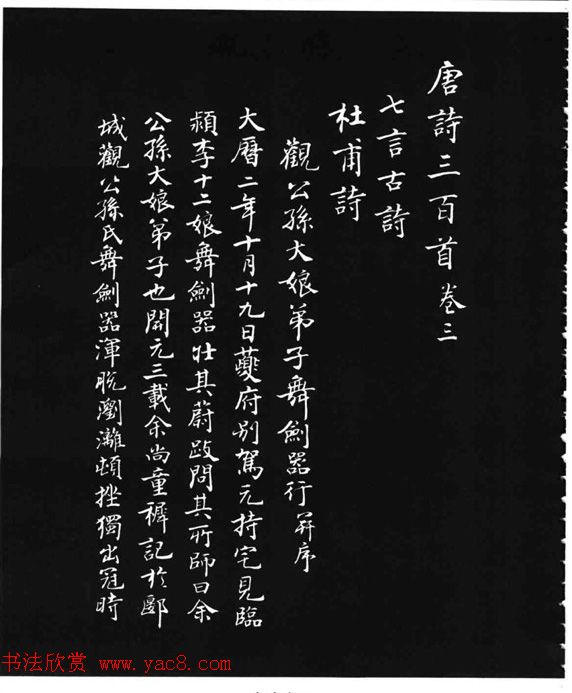 唐詩三百首卷三
七言古詩
杜甫詩
觀公孫大娘弟子舞劍器行并序
大曆二年十月十九日夔府別駕元持宅見臨
潁李十二娘舞劍器壯其蔚跂問其所師曰余
公孫大娘弟子也開元三載余尚童穉記於郾
城觀公孫氏舞劍器渾脫瀏灕頓挫獨出冠時
书法欣赏 www.yac8.com